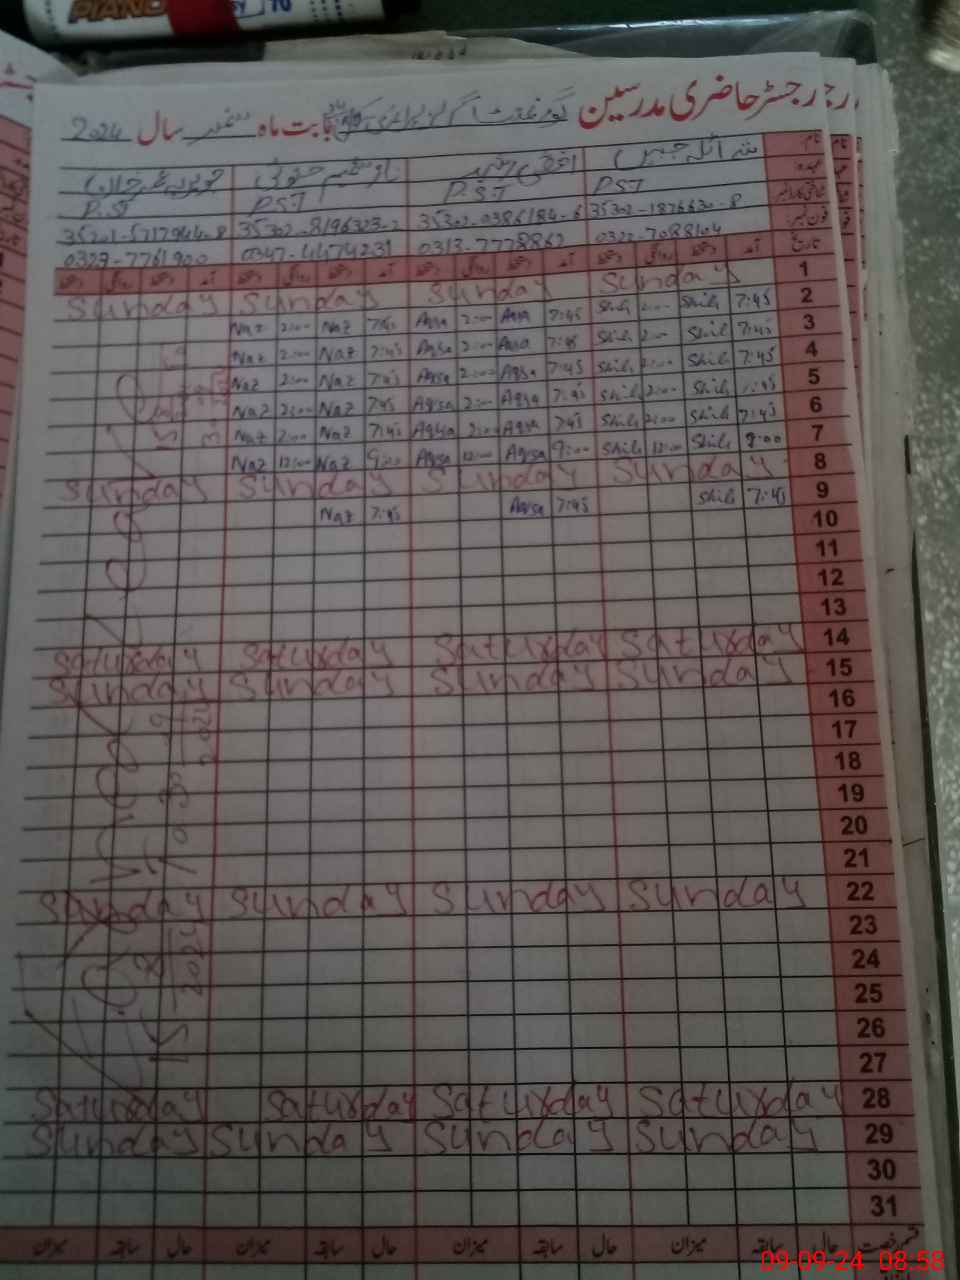 PIANO
70
رجسٹر حاضری مدرسین گورنمنٹ بابت ماہ ستمبر سال 2024
نام
عہدہ
P.ST PST P.S.T PST
شناختی کارڈ نمبر 35302-1876630-8 35302-0386184-6 35302-8196323-2 35201-5717944-8
فون نمبر 0322-7088104 0313-7778862 0347-4474231 0327-7761900
تاریخ آمد دستخط روانگی دستخط آمد دستخط روانگی دستخط آمد دستخط روانگی دستخط آمد دستخط روانگی دستخط
Sunday Sunday Sunday Sunday 1
Naz 2:00 Naz 7:45 Aqsa 2:00 Aqsa 7:45 Shib 2:00 Shib 7:45 2
Naz 2:00 Naz 7:45 Aqsa 2:00 Aqsa 7:45 Shib 2:00 Shib 7:45 3
Naz 2:00 Naz 7:45 Aqsa 2:00 Aqsa 7:45 Shib 2:00 Shib 7:45 4
Naz 2:00 Naz 7:45 Aqsa 2:00 Aqsa 7:45 Shib 2:00 Shib 7:45 5
Naz 2:00 Naz 7:45 Aqsa 2:00 Aqsa 7:45 Shib 2:00 Shib 7:45 6
Naz 12:00 Naz 9:00 Aqsa 12:00 Aqsa 9:00 Shib 12:00 Shib 9:00 7
Sunday Sunday Sunday Sunday 8
Naz 7:45 Aqsa 7:45 Shib 7:45 9
10
11
12
13
Saturday Saturday Saturday Saturday 14
Sunday Sunday Sunday Sunday 15
16
17
18
19
20
21
Sunday Sunday Sunday Sunday 22
23
24
25
26
27
Saturday Saturday Saturday Saturday 28
Sunday Sunday Sunday Sunday 29
30
31
قسم رخصت حال سابقہ میزان حال سابقہ میزان حال سابقہ میزان حال سابقہ میزان
09-09-24 08:58